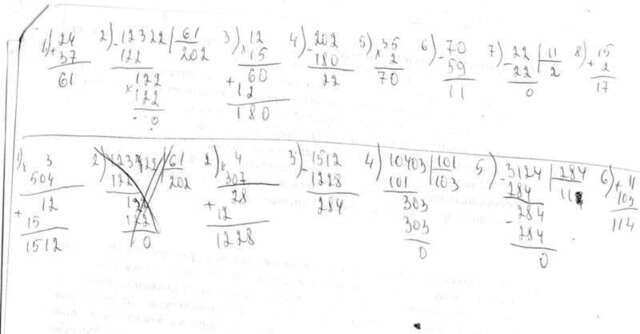 1) + 24
37
61
2) - 12322 | 61
122 | 202
122
122
0
3) × 12
15
60
+ 12
180
4) - 202
180
22
5) × 35
2
70
6) - 70
59
11
7) - 22 | 11
22 | 2
0
8) + 15
2
17
1) × 3
504
12
+
15
1512
2) × 4
307
28
+ 12
1228
3) - 1512
1228
284
4) 10403 | 101
101 | 103
303
303
0
5) - 3124 | 284
284 | 11
- 284
284
0
6) + 11
103
114